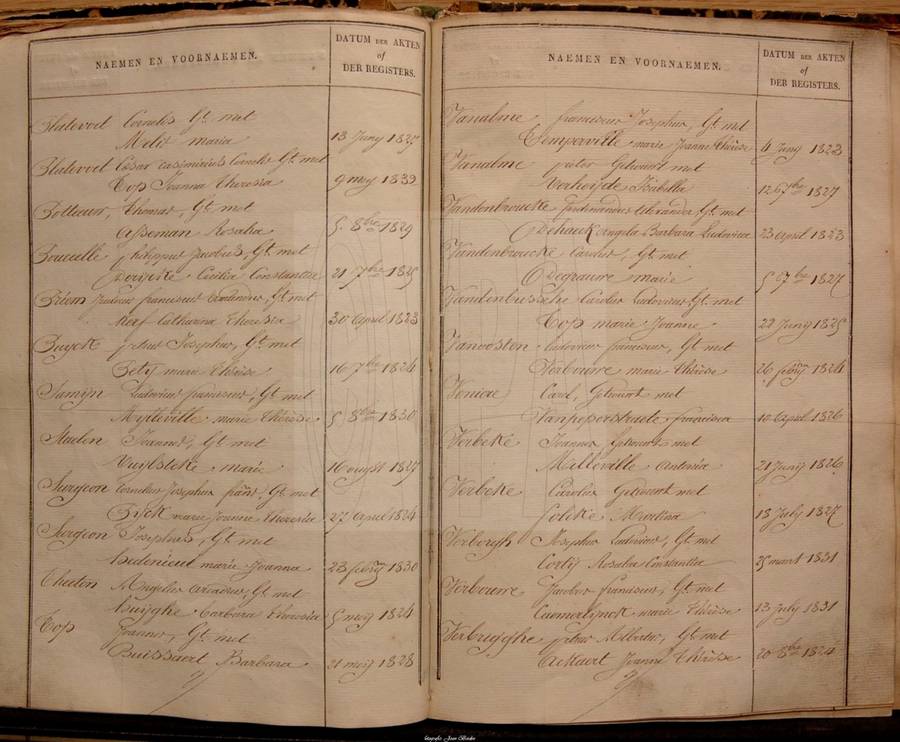 NAEMEN EN VOORNAEMEN.
DATUM DER AKTEN
of
DER REGISTERS.
Slatevoel Cornelis Gt. met
Melis maria 13 Juny 1827
Slatevoel Cesar Cornelis Gt. met
Top Joanna theresia 9 mey 1833
Thomas, Gt. met
Asseman Rosalia 5 8bre 1829
Bouculle philippus Jacobus, Gt. met
Cecilia Constantia 21 7bre 1825
franciscus Gt. met
Neef Catharina theresia 30 april 1823
Buyck petrus Josephus, Gt. met
Bety marie thérèse 16 7bre 1824
Samyn Ludovicus franciscus, Gt. met
Mytteville marie thérèse 5 8bre 1830
Staelen Joannes, Gt. met
Vuylsteke marie 16 ougst 1827
Surgeon Cornelius Josephus Gt. met
marie joanna theresia 27 april 1824
Surgeon Josephus, Gt. met
marie Joanna 23 febry 1830
Theeten Angelus amadeus, Gt. met
Huyghe Barbara theresia 5 mey 1824
Top Joannes, Gt. met
Buissaert Barbara 21 mey 1828
NAEMEN EN VOORNAEMEN.
DATUM DER AKTEN
of
DER REGISTERS.
Vanalme franciscus Josephus, Gt. met
Temperville marie Joanne thérèse 4 Juny 1823
Vanalme pieter Getrouwt met
Verheyde Isabella 12 7bre 1827
Vandenbroucke ferdinandus alexander, Gt. met
Dehaeck Angela Barbara Ludovica 23 april 1823
Vandenbroucke Carolus, Gt. met
Degrauwe marie 5 7bre 1827
Vandenbussche Carolus Ludovicus Gt. met
Top marie Joanne 29 Juny 1825
Vanoosten Ludovicus franciscus, Gt. met
marie thérèse 26 febry 1824
Carel, Getrouwt met
Vanpeperstraete francisca 10 april 1826
Verbeke Joannes Getrouwt met
Milleville Antonia 21 Juny 1826
Verbeke Carolus Getrouwt met
Folcke 18 July 1827
Josephus Ludovicus, Gt. met
Corty Rosalia Constantia 25 mart 1831
Verbouwe Jacobus franciscus, Gt. met
Caemerlynck marie thérèse 13 july 1831
Verbrugghe petrus Albertus, Gt. met
Ackaert Joanne thérèse 20 8bre 1824